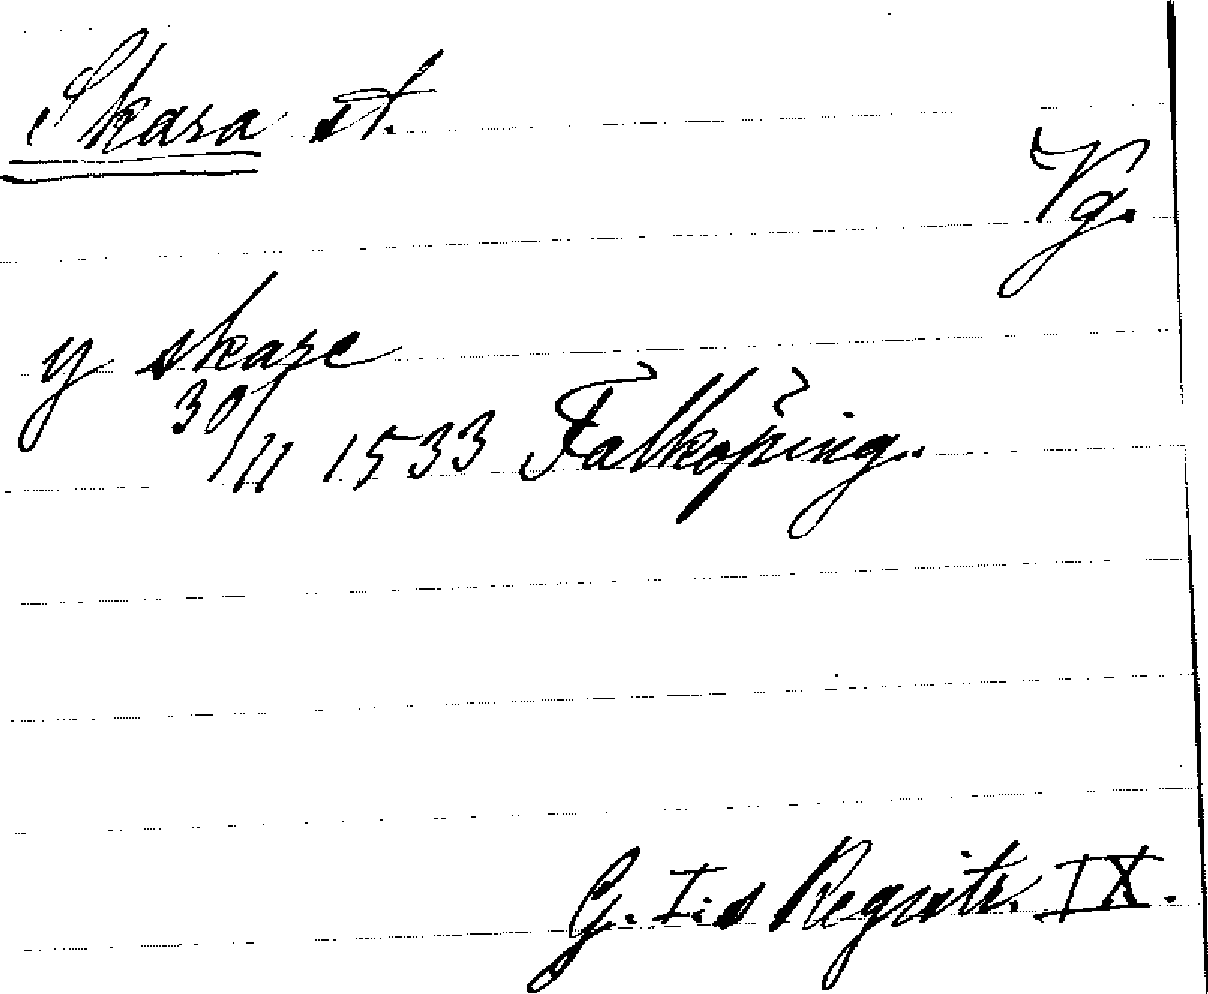 Skara st.
Vg.
y skare
30/11 1533 Falköping.
G. I:s Registr. IX.